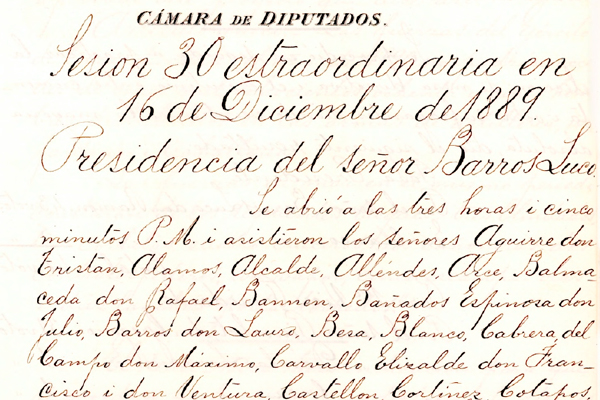 CÁMARA DE DIPUTADOS.
Sesion 30 estraordinaria en
16 de Diciembre de 1889.
Presidencia del señor Barros Luco.
Se abrió a las tres horas i cinco
minutos P. M. i asistieron los señores Aguirre don
Tristan, Alamos, Alcalde, Alléndes, Arce, Balma-
ceda don Rafael, Bannen, Bañados Espinosa don
Julio, Barros don Lauro, Besa, Blanco, Cabrera del
Campo don Máximo, Carvallo Elizalde don Fran-
cisco i don Ventura, Castellon, Cortínez, Cotapos,